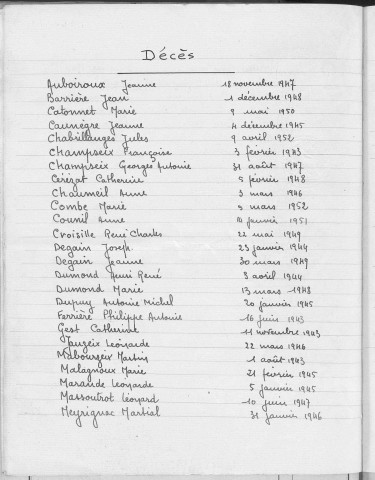 Décès
Auboiroux Jeanne 18 novembre 1947
Barrière Jean 1 décembre 1948
Catonnet Marie 9 mai 1950
Caunègre Jeanne 4 décembre 1945
Chabrillanges Jules 9 avril 1952
Champseix Françoise 3 février 1943
Champseix Georges Antoine 31 août 1947
Cérézat Catherine 5 février 1948
Chaumeil Anne 3 mars 1946
Combe Marie 5 mars 1952
Counil Anne janvier 1951
Croisille René Charles 22 mai 1949
Degain Joseph 23 janvier 1944
Degain Jeanne 30 mars 1949
Dumond Henri René 8 avril 1944
Dumond Marie 13 mars 1948
Dupuy Antoine Michel 20 janvier 1945
Ferrière Philippe Antoine 16 juin 1943
Gest Catherine 11 novembre 1943
Léonarde 22 mars 1946
Mabourgeix Martin 1 août 1943
Malagnoux Marie 21 février 1945
Marande Léonarde 5 janvier 1945
Massoutrot Léonard 10 juin 1947
Meyrignac Martial 31 janvier 1946